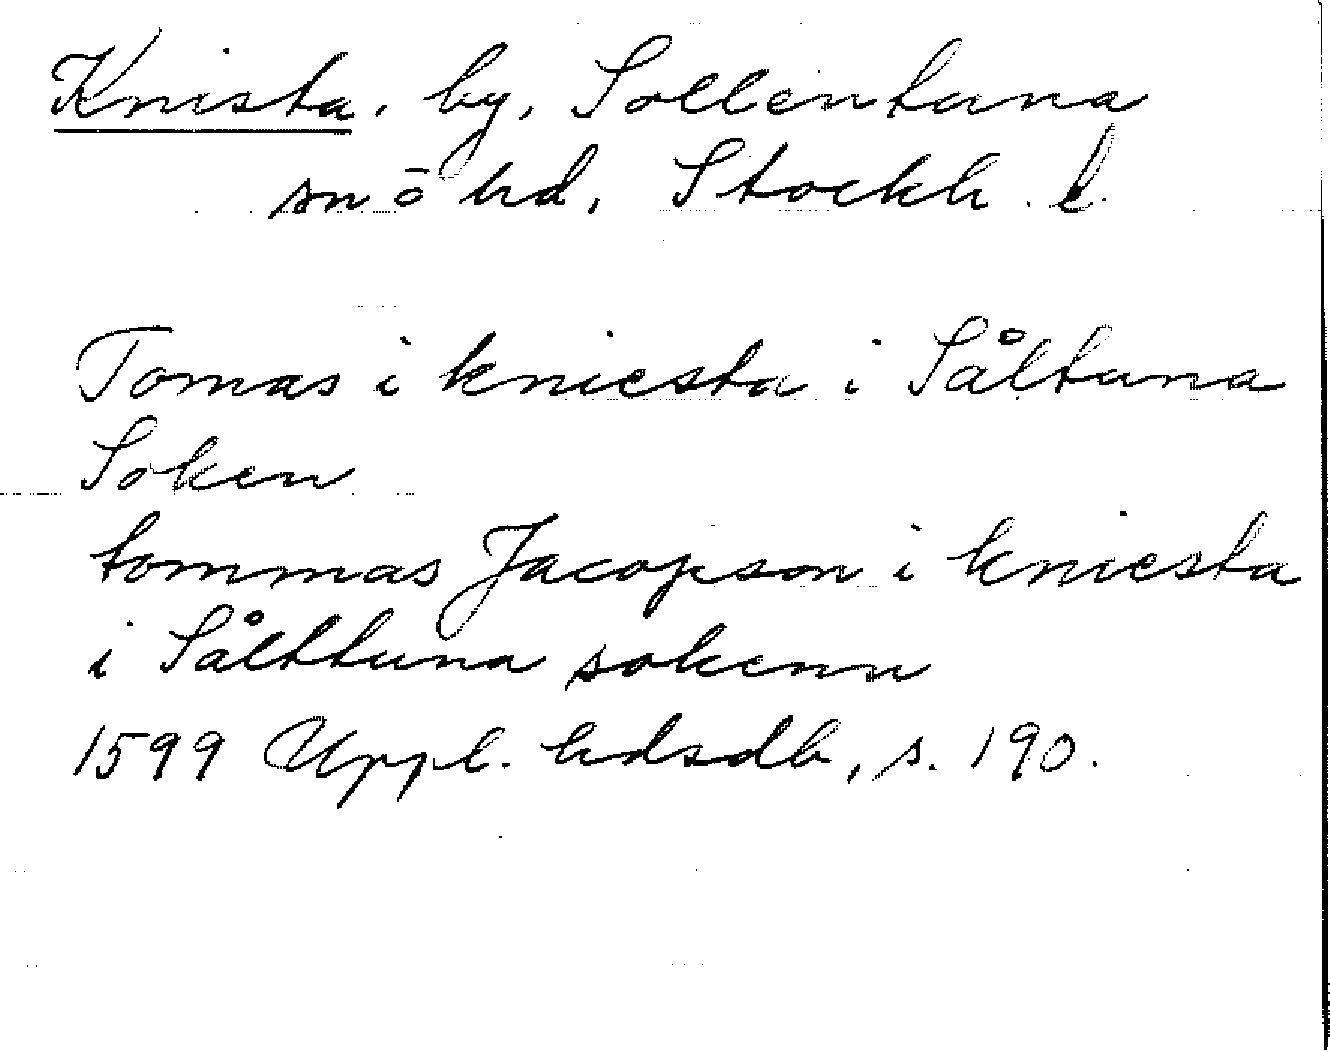 Knista, by, Sollentuna
sn o hd, Stockh. l.
Tomas i kniesta i Såltuna
Soken
tommas Jacopson i kniesta
i Sålttuna sokenn
1599 Uppl. hdsdb, s. 190.